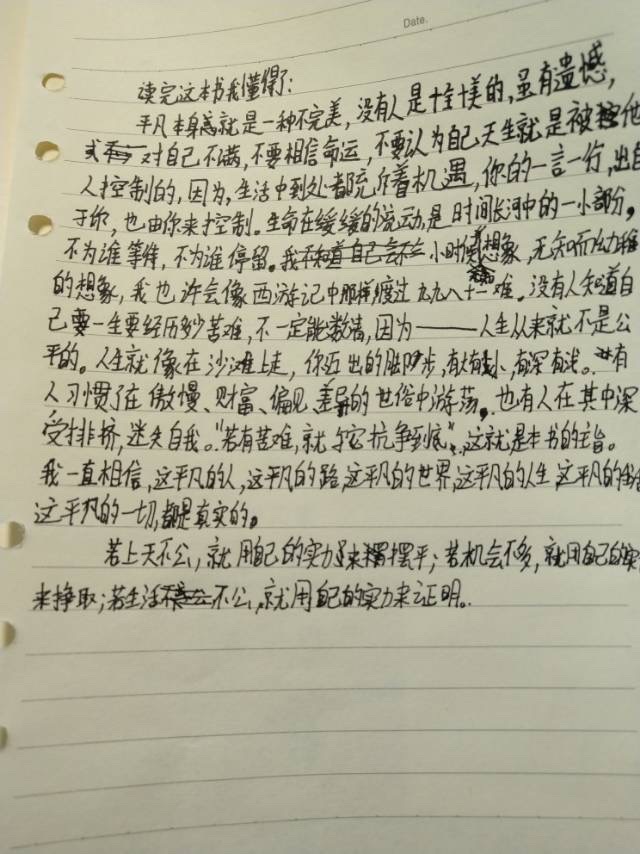 Date.
读完这本书我懂得了：
平凡本身就是一种不完美，没有人是十全十美的，虽有遗憾，
对自己不满，不要相信命运，不要认为自己天生就是被他
人控制的，因为，生活中到处都充斥着机遇，你的一言一行，出自
于你，也由你来控制。生命在缓缓的流动，是时间长河中的一小部分，
不为谁等待，不为谁停留。我小时候想象，无知而幼稚
的想象，我也许会像西游记中那样渡过九九八十一难。没有人知道自
己一生要经历多少苦难，不一定能数清，因为——人生从来就不是公
平的。人生就像在沙滩上走，你迈出的脚步，有大有小，有深有浅。有
人习惯了在傲慢、财富、偏见、差异的世俗中游荡，也有人在其中深
受排挤，迷失自我。“若有苦难，就与它抗争到底”，这就是本书的主旨。
我一直相信，这平凡的人，这平凡的路，这平凡的世界，这平凡的人生，这平凡的
这平凡的一切，都是真实的。
若上天不公，就用自己的实力来摆平；若机会不多，就用自己的实
来挣取；若生活不公，就用自己的实力来证明。